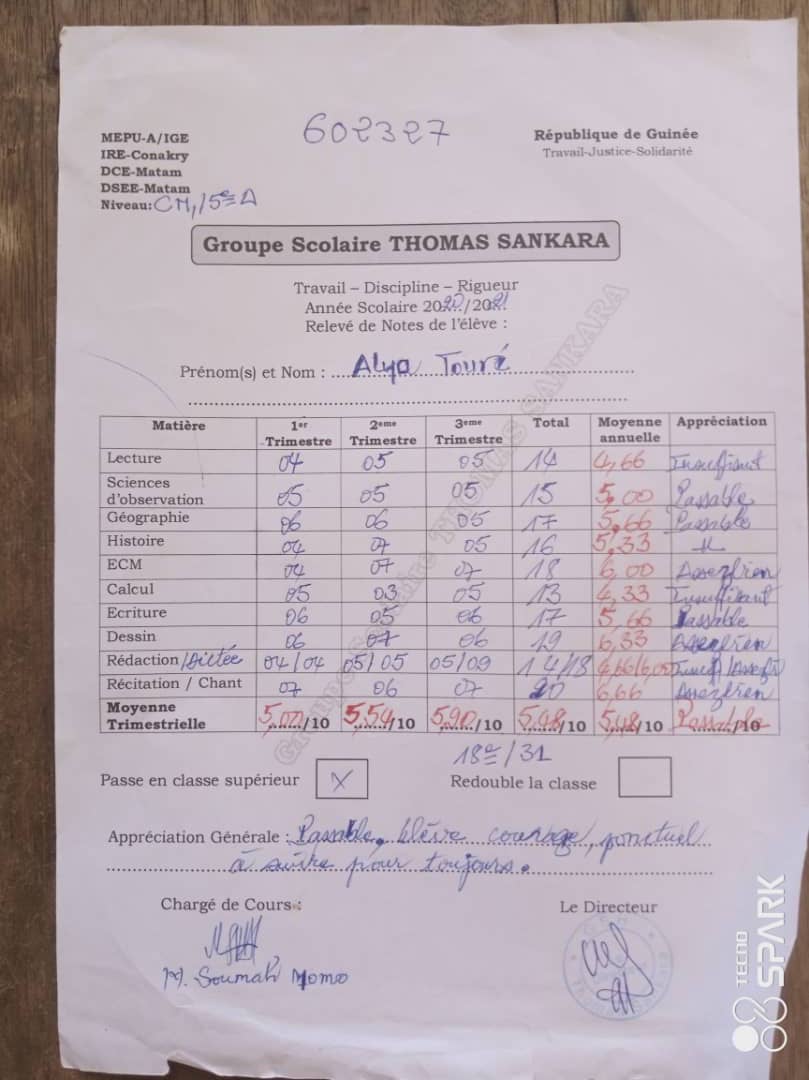 602327
MEPU-A/IGE
IRE-Conakry
DCE-Matam
DSEE-Matam
Niveau: CM1/5e A
République de Guinée
Travail-Justice-Solidarité
Groupe Scolaire THOMAS SANKARA
Travail – Discipline – Rigueur
Année Scolaire 2020/2021
Relevé de Notes de l'élève :
Prénom(s) et Nom : Alya Touré
Matière 1er Trimestre 2eme Trimestre 3eme Trimestre Total Moyenne annuelle Appréciation
Lecture 04 05 05 14 4,66 Insuffisant
Sciences d'observation 05 05 05 15 5,00 Passable
Géographie 06 06 05 17 5,66 Passable
Histoire 04 07 05 16 5,33 _"_
ECM 04 07 07 18 6,00 Assez bien
Calcul 05 03 05 13 4,33 Insuffisant
Ecriture 06 05 06 17 5,66 Passable
Dessin 06 07 06 19 6,33 Assez bien
Rédaction/Dictée 04/04 05/05 05/09 14/18 4,66/6,00
Récitation / Chant 07 06 07 20 6,66 Assez bien
Moyenne Trimestrielle 5,00/10 5,54/10 5,90/10 /10 5,48/10 Passable/10
18e/31
Passe en classe supérieur X Redouble la classe
Appréciation Générale : Passable, élève courage, ponctuel
à suivre pour toujours.
Chargé de Cours :
Le Directeur
M. Soumah Momo
Groupe Scolaire THOMAS SANKARA
TECNO
SPARK